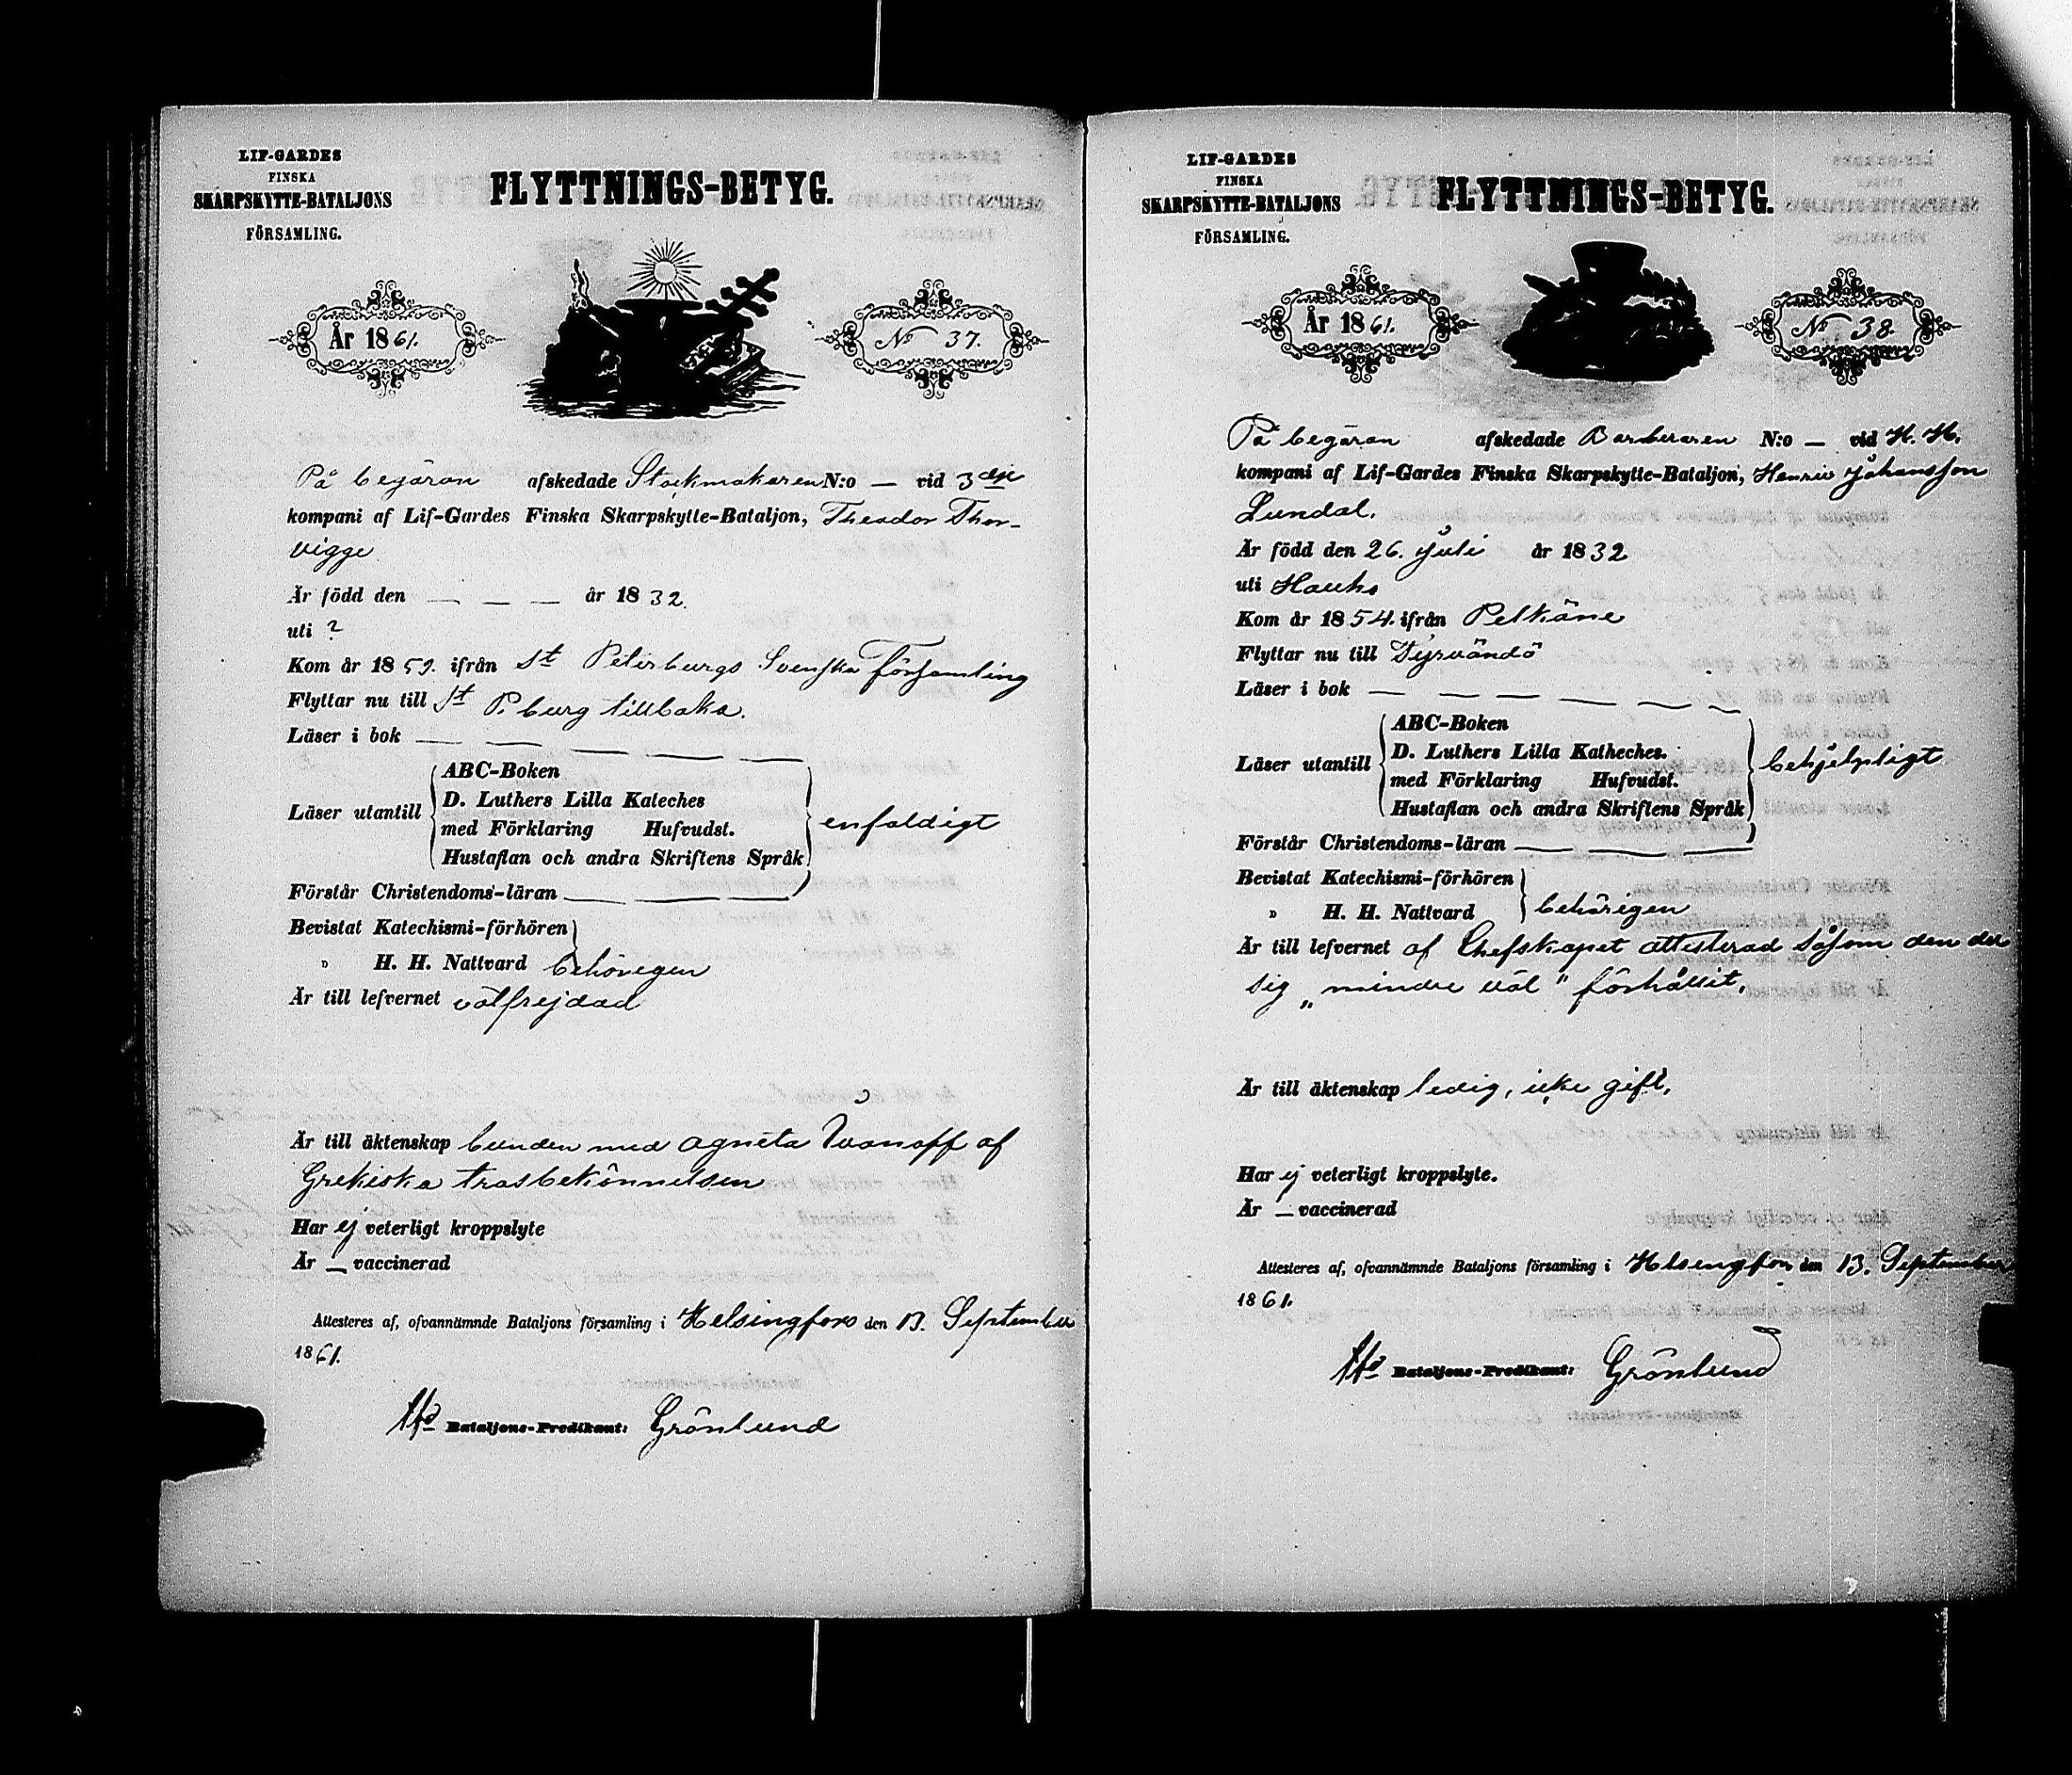 LIF-GARDES
FINSKA
SKARPSKYTTE-BATALJONS
FÖRSAMLING.
FLYTTNINGS-BETYG.
År 1861.
No 37.
På begäran afskedade Stockmakaren N:o — vid 3dje
kompani af Lif-Gardes Finska Skarpskytte-Bataljon, Theodor Thor-
vigge
Är född den — — — år 1832.
uti ?
Kom år 1859. ifrån St Petersburgs Svenska Församling
Flyttar nu till St P.burg tillbaka.
Läser i bok — — — — — —
Läser utantill
ABC-Boken
D. Luthers Lilla Kateches
med Förklaring Hufvudst.
Hustaflan och andra Skriftens Språk
enfaldigt
Förstår Christendoms-läran — — —
Bevistat Katechismi-förhören
„ H. H. Nattvard behörigen
Är till lefvernet välfrejdad
Är till äktenskap bunden med Agneta Ivanoff af
Grekiska trosbekännelsen
Har ej veterligt kroppslyte
Är — vaccinerad
Attesteras af, ofvannämnde Bataljons församling i Helsingfors den 13. September
1861.
Bataljons-Predikant: Grönlund
LIF-GARDES
FINSKA
SKARPSKYTTE-BATALJONS
FÖRSAMLING.
FLYTTNINGS-BETYG.
År 1861.
No 38.
På begäran afskedade Barberaren N:o — vid H. H.
kompani af Lif-Gardes Finska Skarpskytte-Bataljon, Henric Johansson
Lundal.
Är född den 26. Juli år 1832
uti Hauho
Kom år 1854. ifrån Pelkäne
Flyttar nu till Tyrvändö
Läser i bok — — — — — —
Läser utantill
ABC-Boken
D. Luthers Lilla Katheches.
med Förklaring Hufvudst.
Hustaflan och andra Skriftens Språk
behjelpligt
Förstår Christendoms-läran — — —
Bevistat Katechismi-förhören
„ H. H. Nattvard behörigen
Är till lefvernet af Chefskapet attesterad såsom den der
sig „mindre väl" förhållit.
Är till äktenskap ledig, icke gift.
Har ej veterligt kroppslyte.
Är — vaccinerad
Attesteres af, ofvannämnde Bataljons församling i Helsingfors den 13. September
1861.
Bataljons-Predikant: Grönlund